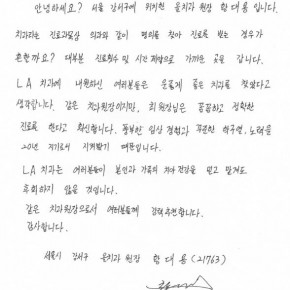 안녕하세요? 서울 강서구에 위치한 윤치과 원장 함대용입니다.
치과라는 진료과목상 의과와 같이 명의를 찾아 진료를 받는 경우가
흔할까요? 대부분 진료횟수 및 시간 제약으로 가까운 곳을 갑니다.
LA 치과에 내원하신 여러분들은 운좋게 좋은 치과를 찾았다고
생각합니다. 같은 치과원장이지만, 최 원장님은 꼼꼼하고 정확한
진료를 한다고 확신합니다. 풍부한 임상 경험과 꾸준한 학구열, 노력을
20년 지기로서 지켜봤기 때문입니다.
LA 치과는 여러분들이 본인과 가족의 치아 건강을 믿고 맡겨도
후회하지 않을 것입니다.
같은 치과원장으로서 여러분들께 강력추천합니다.
감사합니다.
서울시 강서구 윤치과 원장 함대용 (21763)